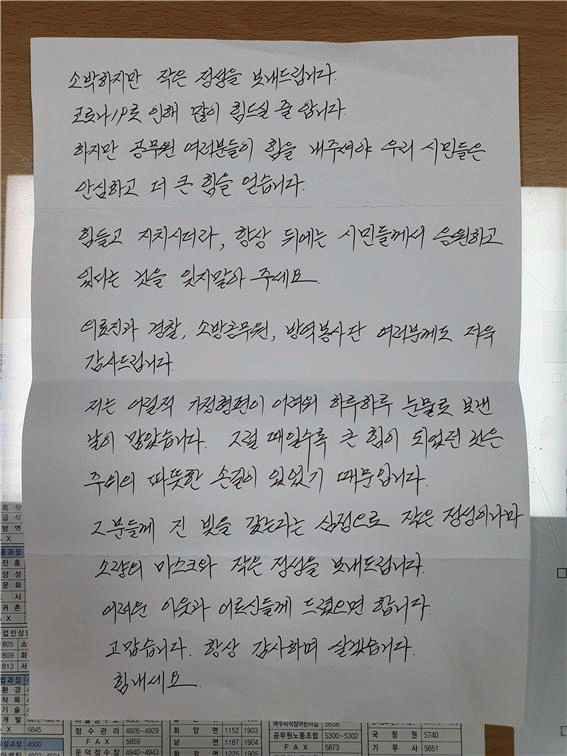 소박하지만 작은 정성을 보내드립니다.
코로나19로 인해 많이 힘드실 줄 압니다.
하지만 공무원 여러분들이 힘을 내주셔야 우리 시민들은
안심하고 더 큰 힘을 얻습니다.
힘들고 지치시더라, 항상 뒤에는 시민들께서 응원하고
있다는 것을 잊지말아 주세요.
의료진과 경찰, 소방공무원, 방역봉사단 여러분께도 더욱
감사드립니다.
저는 어릴적 가정형편이 어려워 하루하루 눈물로 보낸
날이 많았습니다. 그럴 때일수록 큰 힘이 되었던 것은
주위의 따뜻한 손길이 있었기 때문입니다.
그분들께 진 빚을 갚는다는 심정으로 작은 정성이나마
소량의 마스크와 작은 정성을 보내드립니다.
어려운 이웃과 어르신들께 드렸으면 합니다.
고맙습니다. 항상 감사하며 살겠습니다.
힘내세요.
정수관리 4926~4929
FAX 5859
둔덕정수장 4940~4943
화양면 1152 1903
남면 1187 1904
공무원노동조합 5300~5302
FAX 5873
국정원 5740
기무사 5651
4500
5845